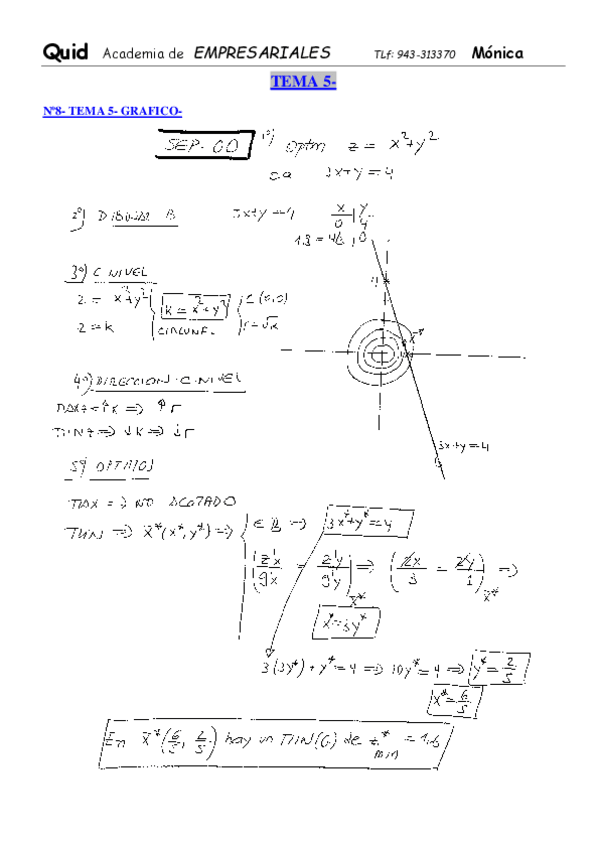 Quid Academia de EMPRESARIALES TLf: 943-313370 Mónica
TEMA 5-
Nº8- TEMA 5- GRAFICO-
SEP-00 1º) Optm z = x²+y²
s.a 3x+y=4
2º) DIBUJAR B 3x+y=4 x | y
0 | 4
1.3 = 4/3 , 0
3º) C NIVEL
z = x²+y² k = x²+y² C(0,0)
z = k CIRCUNF. r=√k
4
x*
4º) DIRECCION C.NIVEL
MAX z = ↑k ⇒ ↑r
MIN z ⇒ ↓k ⇒ ↓r
3x+y=4
5º) OPTIMOS
MAX ⇒ NO ACOTADO
MIN ⇒ X*(x*, y*) ⇒ ∈ B ⇒ 3x*+y*=4
z'x/g'x = z'y/g'y ⇒ (2x/3 = 2y/1) x* ⇒
x*
x*=3y*
3(3y*)+y*=4 ⇒ 10y*=4 ⇒ y*=2/5
x*=6/5
En X*(6/5, 2/5) hay un MIN(G) de z* min = 1,6